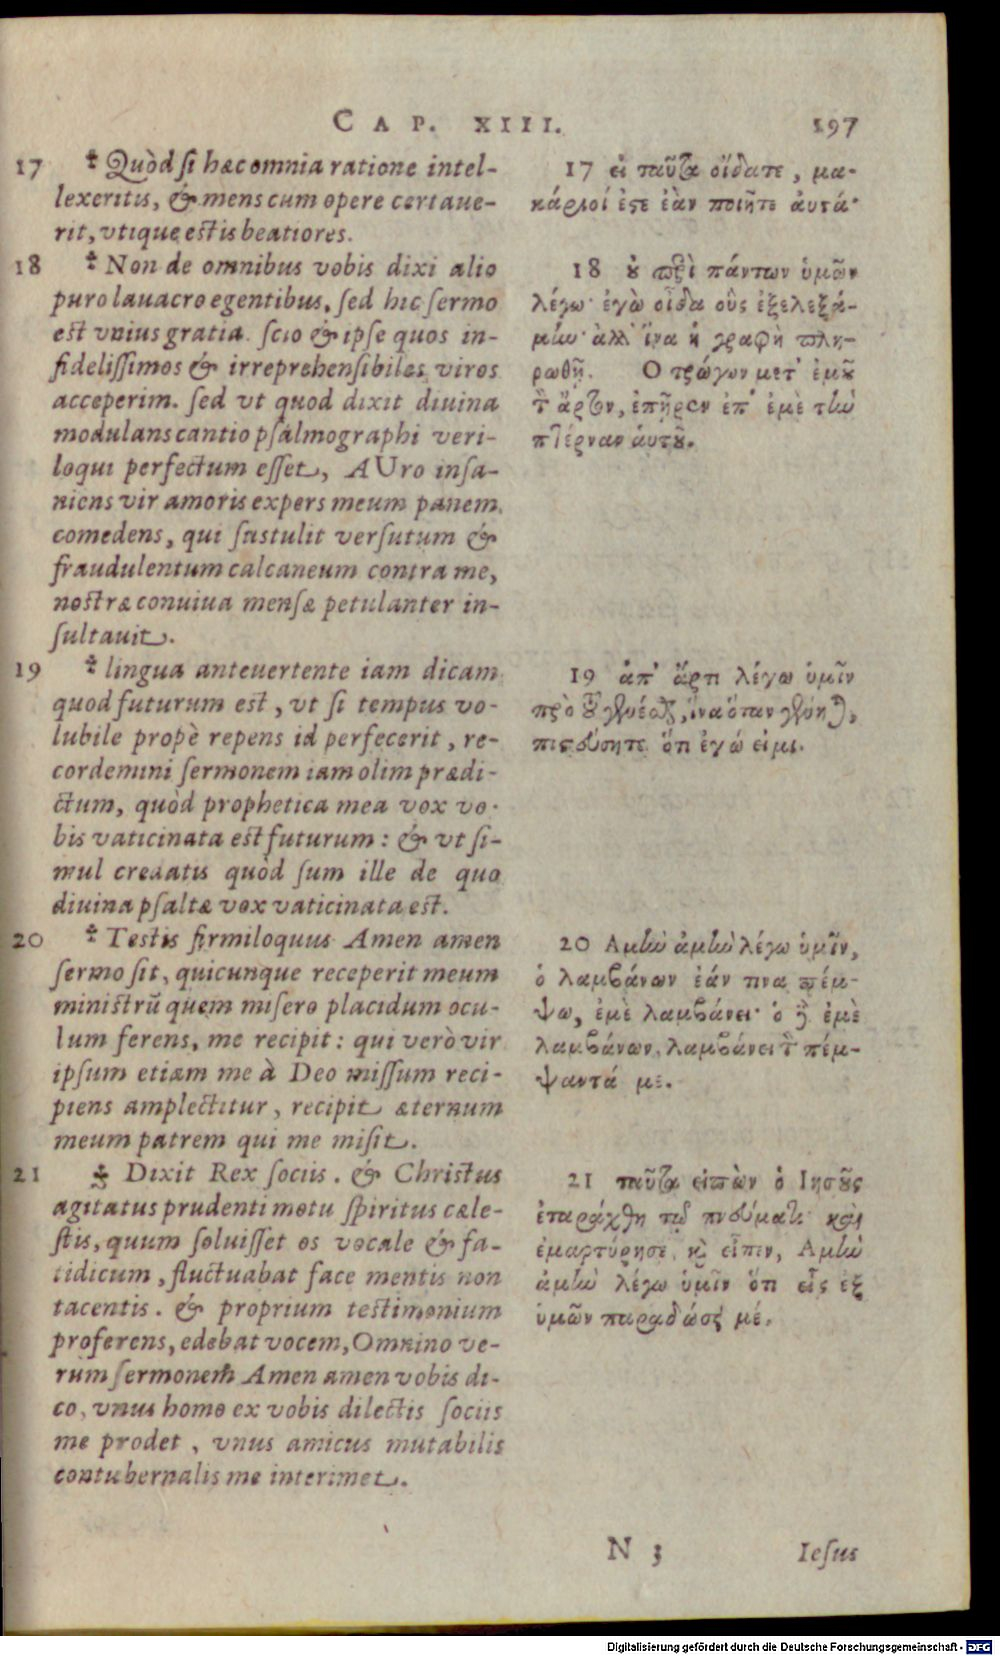 CAP. XIII. 197
17 Quòd ſi hæc omnia ratione intel-
lexeritis, & mens cum opere certaue-
rit, vtique eſtis beatiores.
18 Non de omnibus vobis dixi alio
puro lauacro egentibus, ſed hic ſermo
eſt vnius gratia. ſcio & ipſe quos in-
fideliſſimos & irreprehenſibiles viros
acceperim. ſed vt quod dixit diuina
modulans cantio pſalmographi veri-
loqui perfectum eſſet, AUro inſa-
niens vir amoris expers meum panem
comedens, qui ſuſtulit verſutum &
fraudulentum calcaneum contra me,
noſtræ conuiua menſæ petulanter in-
ſultauit.
19 lingua anteuertente iam dicam
quod futurum eſt, vt ſi tempus vo-
lubile propè repens id perfecerit, re-
cordemini ſermonem iam olim prædi-
ctum, quòd prophetica mea vox vo-
bis vaticinata eſt futurum: & vt ſi-
mul credatis quòd ſum ille de quo
diuina pſaltæ vox vaticinata eſt.
20 Teſtis firmiloquus Amen amen
ſermo ſit, quicunque receperit meum
miniſtrũ quem miſero placidum ocu-
lum ferens, me recipit: qui verò vir
ipſum etiam me à Deo miſſum reci-
piens amplectitur, recipit æternum
meum patrem qui me miſit.
21 Dixit Rex ſociis. & Chriſtus
agitatus prudenti motu ſpiritus cæle-
ſtis, quum ſoluiſſet os vocale & fa-
tidicum, fluctuabat face mentis non
tacentis. & proprium teſtimonium
proferens, edebat vocem, Omnino ve-
rum ſermonem Amen amen vobis di-
co, vnus homo ex vobis dilectis ſociis
me prodet, vnus amicus mutabilis
contubernalis me interimet.
17 εἰ ταῦτα οἴδατε, μα-
κάριοί ἐστε ἐὰν ποιῆτε ἀυτά·
18 ȣ περὶ πάντων ὑμῶν
λέγω· ἐγὼ οἶδα οὓς ἐξελεξά-
μην· ἀλλ' ἵνα ἡ γραφὴ πλη-
ρωθῇ. Ο τρώγων μετ' ἐμȣ͂
τὸν ἄρτον, ἐπῆρεν ἐπ' ἐμὲ τὴν
πτέρναν ἀυτȣ͂.
19 ἀπ' ἄρτι λέγω ὑμῖν
πρὸ τȣ͂ γενέσθαι, ἵνα ὅταν γένηται,
πιστεύσητε ὅτι ἐγώ εἰμι.
20 Αμὴν ἀμὴν λέγω ὑμῖν,
ὁ λαμβάνων ἐάν τινα πέμ-
ψω, ἐμὲ λαμβάνει· ὁ δὲ ἐμὲ
λαμβάνων, λαμβάνει τὸν πέμ-
ψαντά με.
21 ταῦτα εἰπὼν ὁ Ιησȣ͂ς
ἐταράχθη τῷ πνεύματι· καὶ
ἐμαρτύρησε, καὶ εἶπεν, Αμὴν
ἀμὴν λέγω ὑμῖν ὅτι εἷς ἐξ
ὑμῶν παραδώσει μέ.
N 3 Ieſus
Digitalisierung gefördert durch die Deutsche Forschungsgemeinschaft - DFG